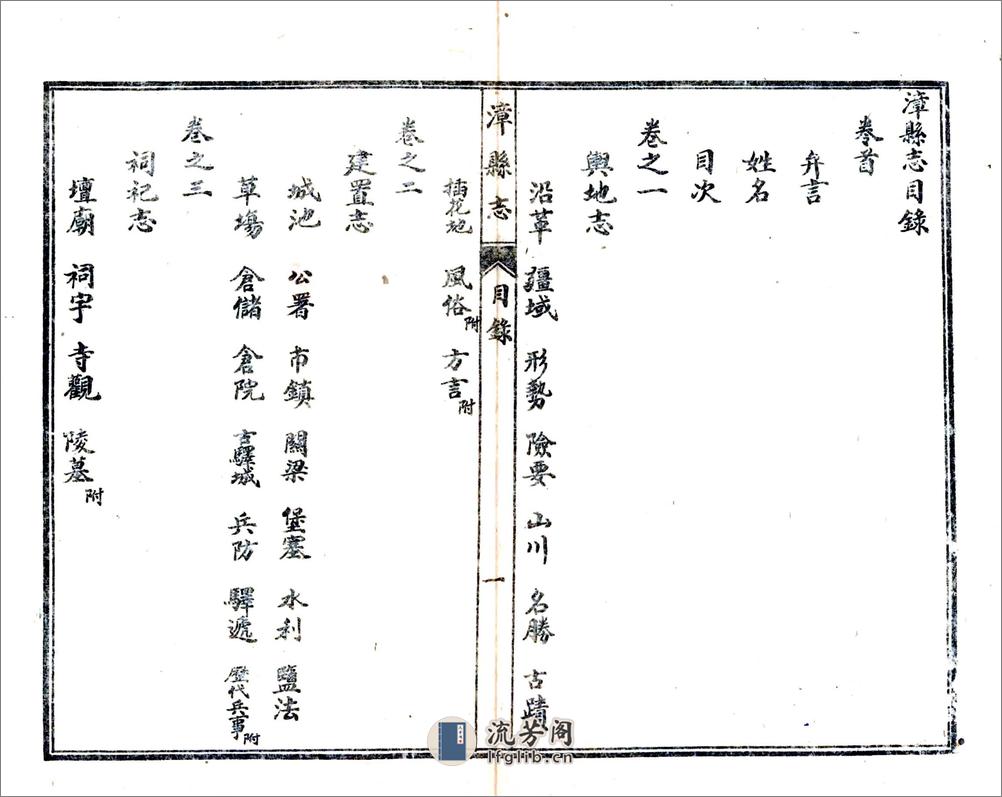 漳縣志目錄
卷首
弁言
姓名
目次
卷之一
輿地志
沿革 疆域 形勢 險要 山川 名勝 古蹟
漳縣志 目錄 一
插花地 風俗附 方言附
卷之二
建置志
城池 公署 市鎮 關梁 堡塞 水利 鹽法
草場 倉儲 倉院 古驛城 兵防 驛遞 歷代兵事附
卷之三
祠祀志
壇廟 祠宇 寺觀 陵墓附
流芳阁
lfglib.cn